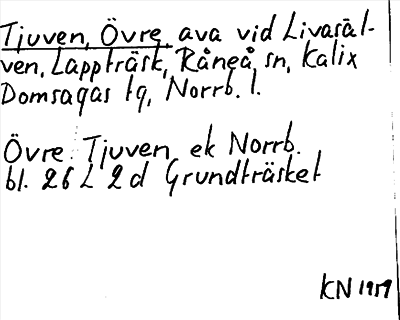 Tjuven, Övre, ava vid Livasäl-
ven, Lappträsk, Råneå sn, Kalix
Domsagas tg, Norrb. l.
Övre Tjuven ek Norrb.
bl. 26 L 2d Grundträsket
KN 1959